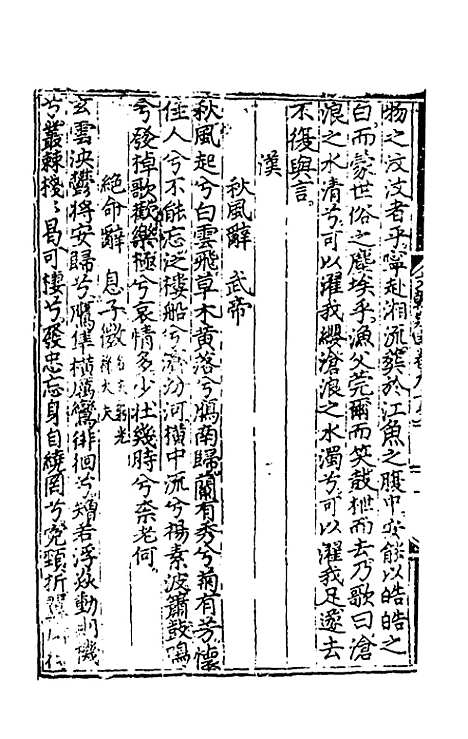 物之汶汶者乎寧赴湘流葬於江魚之腹中安能以皓皓之
白而蒙世俗之塵埃乎漁父莞爾而笑鼓枻而去乃歌曰滄
浪之水清兮可以濯我纓滄浪之水濁兮可以濯我足遂去
不復與言
漢
秋風辭 武帝
秋風起兮白雲飛草木黃落兮鴈南歸蘭有秀兮菊有芳懷
佳人兮不能忘泛樓船兮濟汾河橫中流兮揚素波簫鼓鳴
兮發棹歌歡樂極兮哀情多少壯幾時兮柰老何
絕命辭 息子微
玄雲泱鬱將安歸兮鷹隼橫厲鸞徘徊兮矰若浮猋動則機
兮叢棘棧棧曷可棲兮發忠忘身自繞罔兮冤頸折翼